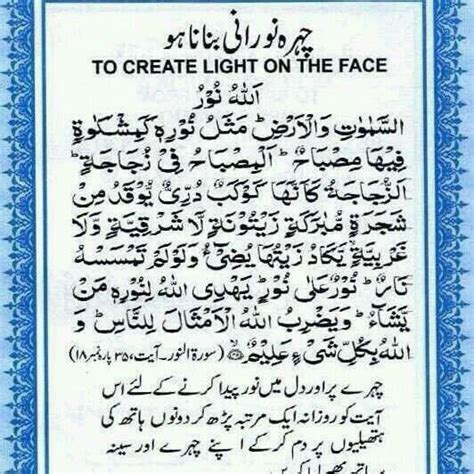 چہرہ نورانی بنانا ہو
TO CREATE LIGHT ON THE FACE
اَللّٰهُ نُوْرُ
السَّمٰوٰتِ وَالْاَرْضِ ؕ مَثَلُ نُوْرِهٖ كَمِشْكٰوةٍ
فِيْهَا مِصْبَاحٌ ؕ اَلْمِصْبَاحُ فِيْ زُجَاجَةٍ ؕ
اَلزُّجَاجَةُ كَاَنَّهَا كَوْكَبٌ دُرِّيٌّ يُّوْقَدُ مِنْ
شَجَرَةٍ مُّبٰرَكَةٍ زَيْتُوْنَةٍ لَّا شَرْقِيَّةٍ وَّلَا
غَرْبِيَّةٍ يَّكَادُ زَيْتُهَا يُضِيْٓءُ وَلَوْ لَمْ تَمْسَسْهُ
نَارٌ ؕ نُوْرٌ عَلٰى نُوْرٍ ؕ يَهْدِى اللّٰهُ لِنُوْرِهٖ مَنْ
يَّشَآءُ ؕ وَيَضْرِبُ اللّٰهُ الْاَمْثَالَ لِلنَّاسِ ؕ وَ
اللّٰهُ بِكُلِّ شَيْءٍ عَلِيْمٌ (سورۃ النور۔ آیت، ۳۵ پارہ نمبر ۱۸)
چہرے پر اور دل میں نور پیدا کرنے کے لئے اس
آیت کو روزانہ ایک مرتبہ پڑھ کر دونوں ہاتھ کی
ہتھیلیوں پر دم کر کے اپنے چہرے اور سینہ
پر ہاتھ پھیر لیا کریں